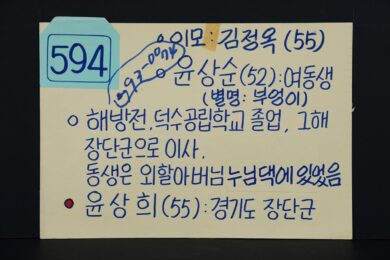 594
이모: 김정옥 (55)
993-0074
윤상순(52): 여동생
(별명: 부엉이)
해방전, 덕수공립학교 졸업, 그해
장단군으로 이사.
동생은 외할아버님 누님댁에 있었음
윤상희(55): 경기도 장단군